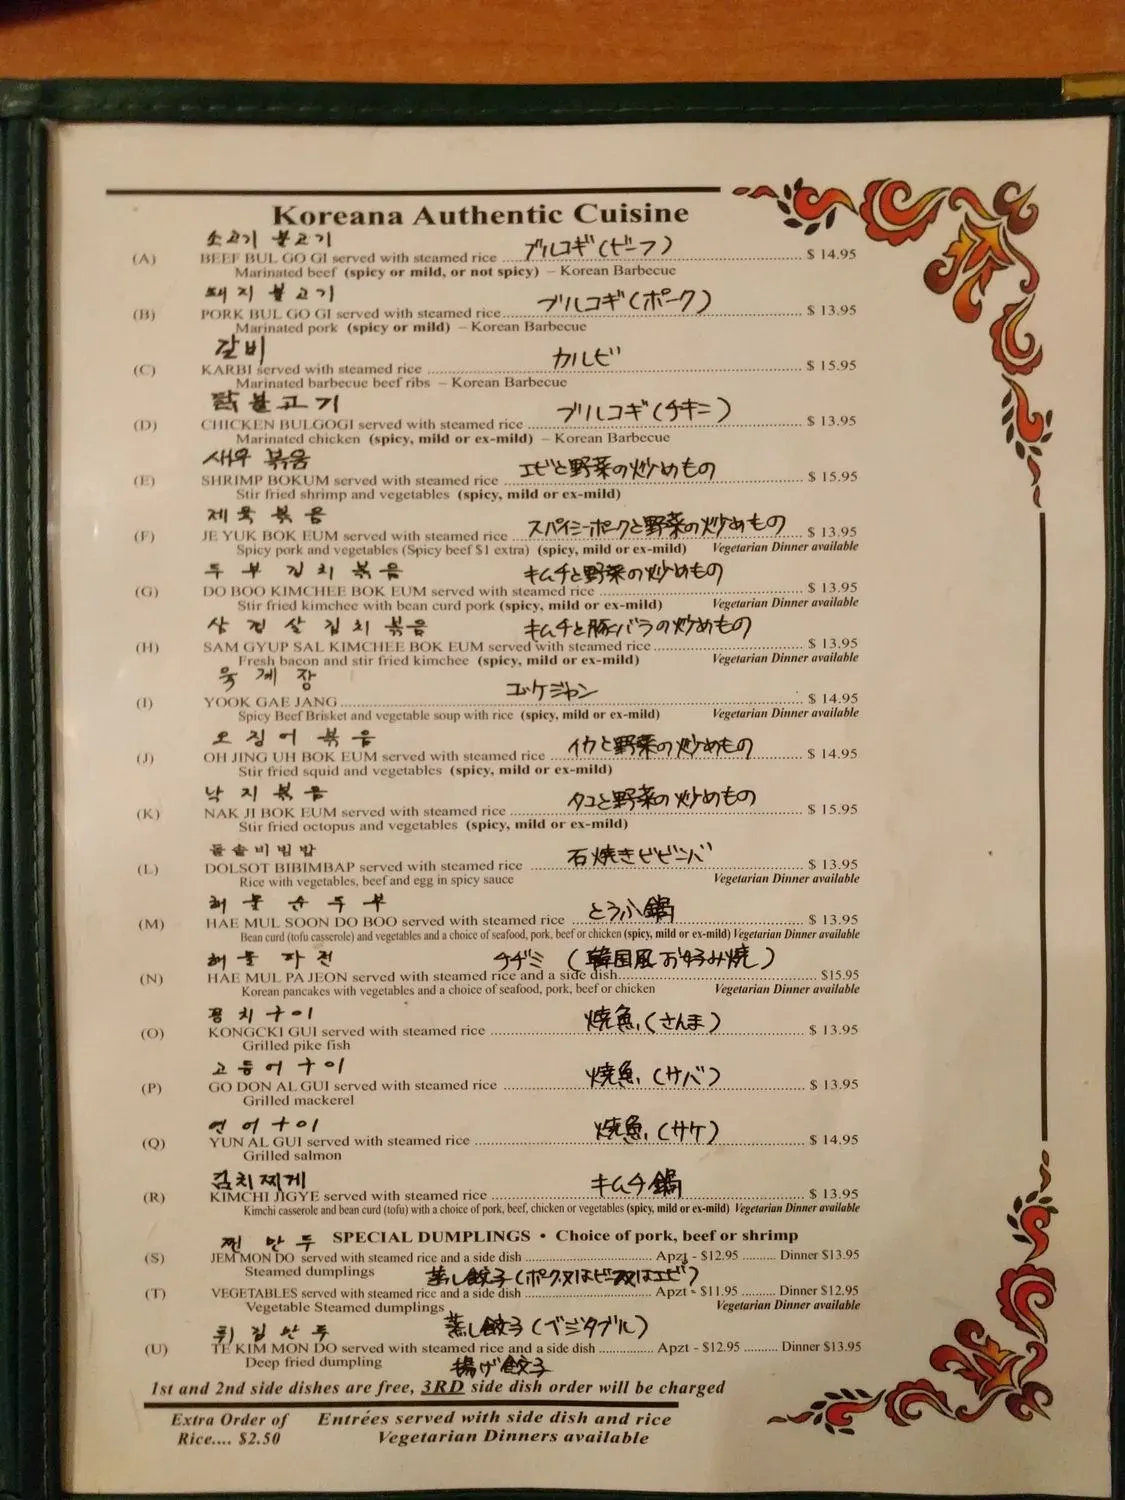 Koreana Authentic Cuisine
소고기 불고기 ブルコギ(ビーフ)
(A) BEEF BUL GO GI served with steamed rice $ 14.95
Marinated beef (spicy or mild, or not spicy) – Korean Barbecue
돼지 불고기 ブルコギ(ポーク)
(B) PORK BUL GO GI served with steamed rice $ 13.95
Marinated pork (spicy or mild) – Korean Barbecue
갈비 カルビ
(C) KARBI served with steamed rice $ 15.95
Marinated barbecue beef ribs – Korean Barbecue
닭불고기 ブルコギ(チキン)
(D) CHICKEN BULGOGI served with steamed rice $ 13.95
Marinated chicken (spicy, mild or ex-mild) – Korean Barbecue
새우 볶음 エビと野菜の炒めもの
(E) SHRIMP BOKUM served with steamed rice $ 15.95
Stir fried shrimp and vegetables (spicy, mild or ex-mild)
제육볶음 スパイシーポークと野菜の炒めもの
(F) JE YUK BOK EUM served with steamed rice $ 13.95
Spicy pork and vegetables (Spicy beef $1 extra) (spicy, mild or ex-mild) Vegetarian Dinner available
두부김치볶음 キムチと野菜の炒めもの
(G) DO BOO KIMCHEE BOK EUM served with steamed rice $ 13.95
Stir fried kimchee with bean curd pork (spicy, mild or ex-mild) Vegetarian Dinner available
삼겹살김치볶음 キムチと豚バラの炒めもの
(H) SAM GYUP SAL KIMCHEE BOK EUM served with steamed rice $ 13.95
Fresh bacon and stir fried kimchee (spicy, mild or ex-mild) Vegetarian Dinner available
육게장 ユッケジャン
(I) YOOK GAE JANG $ 14.95
Spicy Beef Brisket and vegetable soup with rice (spicy, mild or ex-mild) Vegetarian Dinner available
오징어볶음 イカと野菜の炒めもの
(J) OH JING UH BOK EUM served with steamed rice $ 14.95
Stir fried squid and vegetables (spicy, mild or ex-mild)
낙지볶음 タコと野菜の炒めもの
(K) NAK JI BOK EUM served with steamed rice $ 15.95
Stir fried octopus and vegetables (spicy, mild or ex-mild)
돌솥비빔밥 石焼きビビンバ
(L) DOLSOT BIBIMBAP served with steamed rice $ 13.95
Rice with vegetables, beef and egg in spicy sauce Vegetarian Dinner available
해물순두부 とうふ鍋
(M) HAE MUL SOON DO BOO served with steamed rice $ 13.95
Bean curd (tofu casserole) and vegetables and a choice of seafood, pork, beef or chicken (spicy, mild or ex-mild) Vegetarian Dinner available
해물파전 チヂミ (韓国風お好み焼)
(N) HAE MUL PA JEON served with steamed rice and a side dish $15.95
Korean pancakes with vegetables and a choice of seafood, pork, beef or chicken Vegetarian Dinner available
꽁치구이 焼魚(さんま)
(O) KONGCKI GUI served with steamed rice $ 13.95
Grilled pike fish
고등어구이 焼魚(サバ)
(P) GO DON AL GUI served with steamed rice $ 13.95
Grilled mackerel
연어구이 焼魚(サケ)
(Q) YUN AL GUI served with steamed rice $ 14.95
Grilled salmon
김치찌게 キムチ鍋
(R) KIMCHI JIGYE served with steamed rice $ 13.95
Kimchi casserole and bean curd (tofu) with a choice of pork, beef, chicken or vegetables (spicy, mild or ex-mild) Vegetarian Dinner available
찐만두 SPECIAL DUMPLINGS • Choice of pork, beef or shrimp
(S) JEM MON DO served with steamed rice and a side dish Apzt - $12.95 Dinner $13.95
Steamed dumplings 蒸し餃子(ポーク又はビーフ又はエビ)
(T) VEGETABLES served with steamed rice and a side dish Apzt - $11.95 Dinner $12.95
Vegetable Steamed dumplings Vegetarian Dinner available
蒸し餃子(ベジタブル)
튀김만두
(U) TE KIM MON DO served with steamed rice and a side dish Apzt - $12.95 Dinner $13.95
Deep fried dumpling 揚げ餃子
1st and 2nd side dishes are free, 3RD side dish order will be charged
Extra Order of Entrées served with side dish and rice
Rice.... $2.50 Vegetarian Dinners available